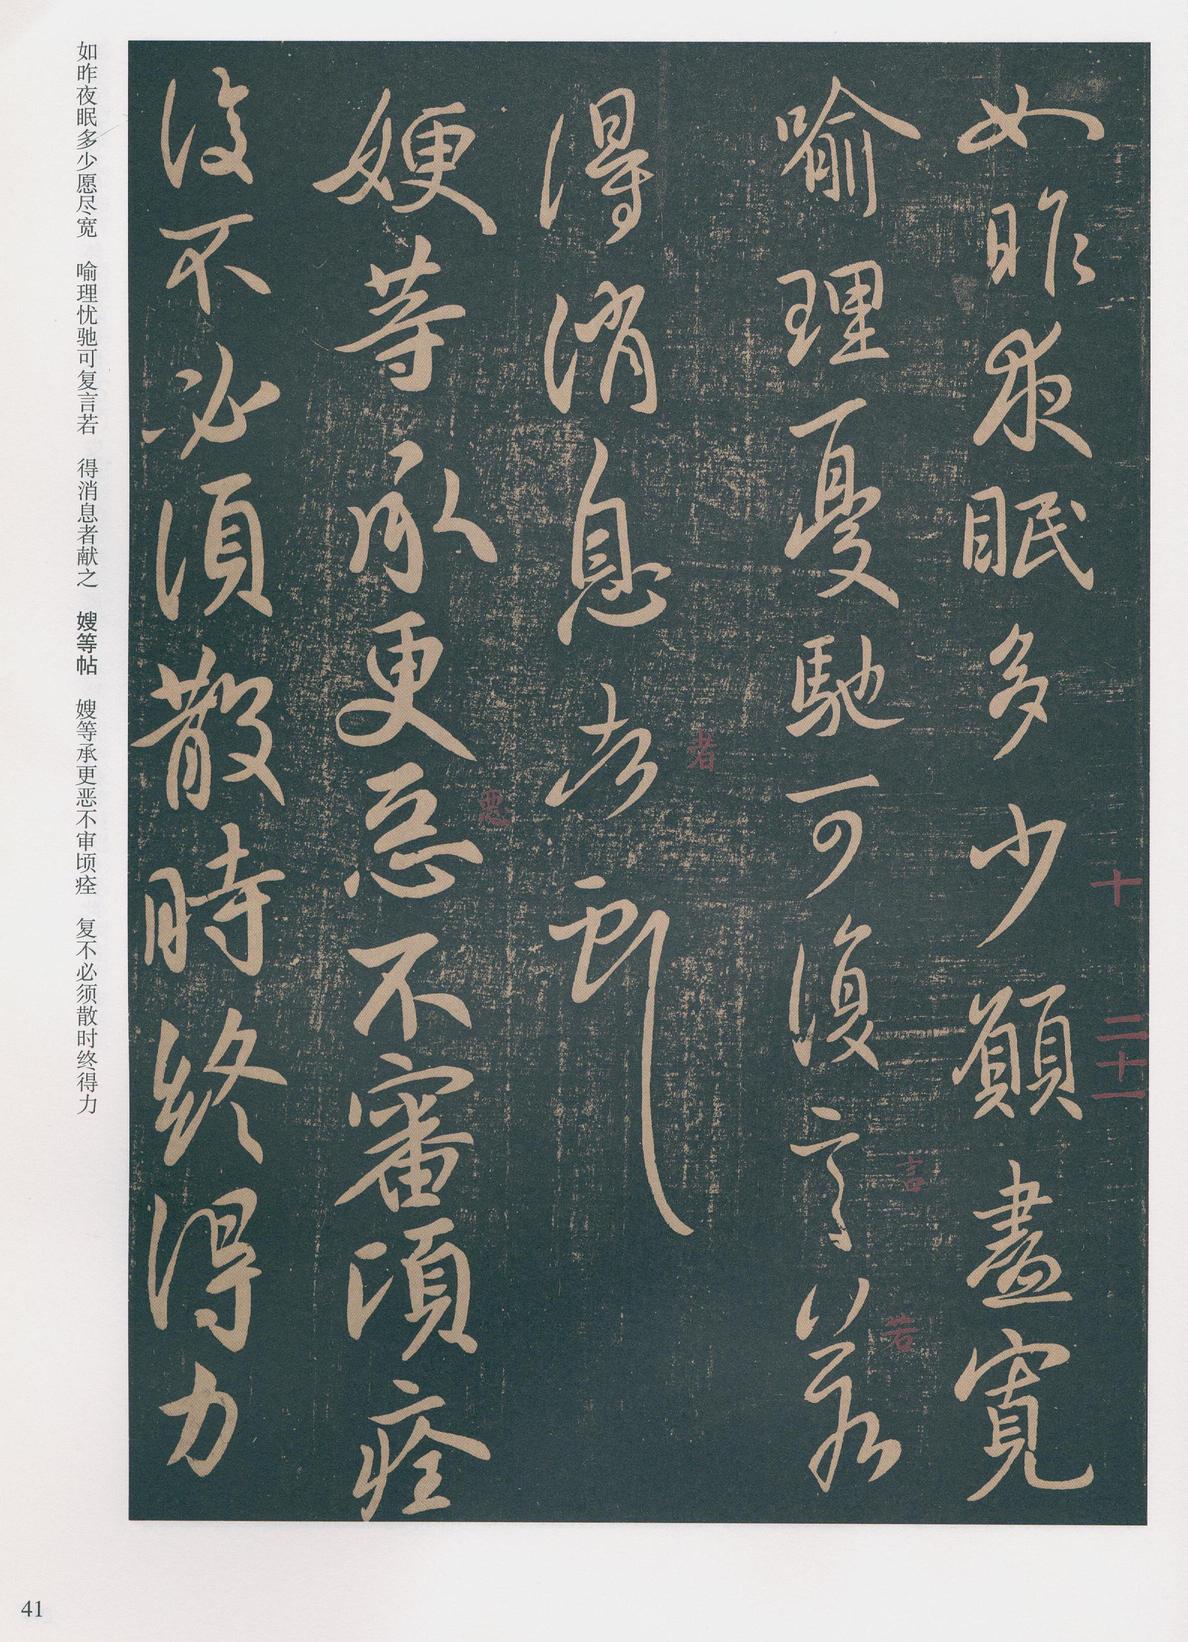 如昨夜眠多少願盡寬
十
二十一
喻理憂馳可復言若
言
若
得消息者
者
嫂等承更惡不審頃痊
惡
復不必須散時終得力
如昨夜眠多少愿尽宽　喻理忧驰可复言若　得消息者献之　嫂等帖　嫂等承更恶不审顷痊　复不必须散时终得力
41